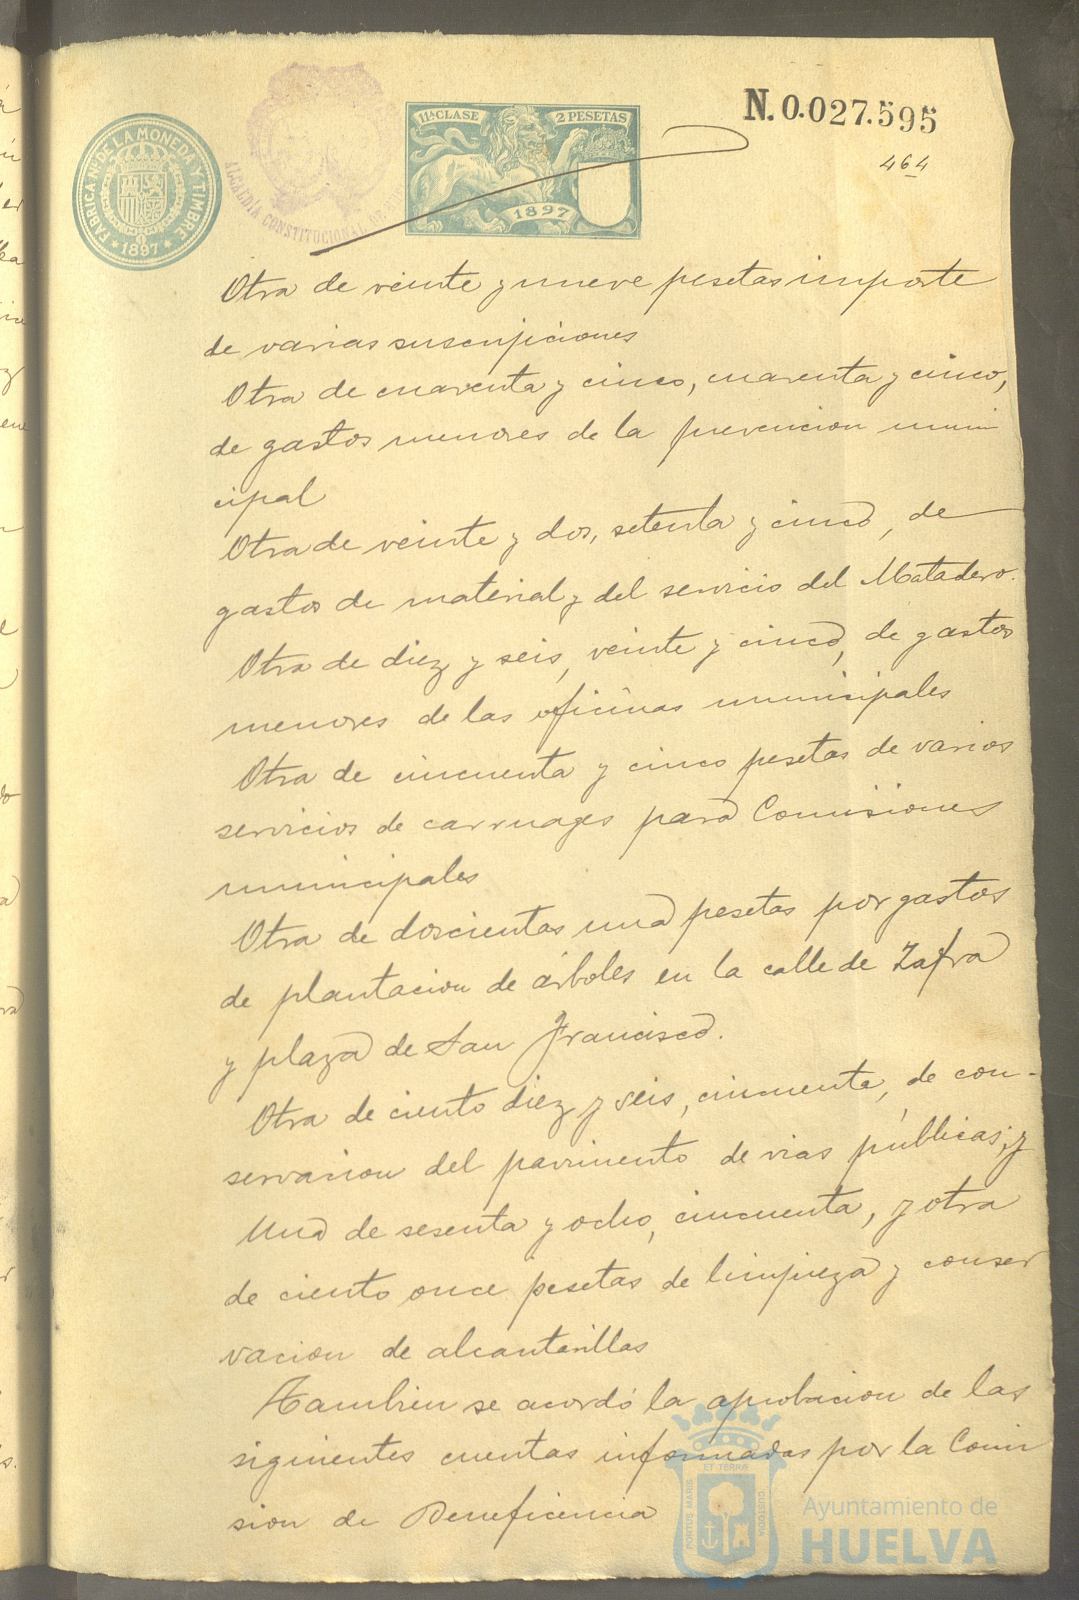 FABRICA Nˡ DE LA MONEDA Y TIMBRE
* 1897 *
ALCALDÍA CONSTITUCIONAL DE
11ª CLASE 2 PESETAS
1897
N.0.027.595
464
Otra de veinte y nueve pesetas importe
de varias suscripciones
Otra de cuarenta y cinco, cuarenta y cinco,
de gastos menores de la prevencion muni
cipal
Otra de veinte y dos, setenta y cinco, de
gastos de material y del servicio del Matadero.
Otra de diez y seis, veinte y cinco, de gastos
menores de las oficinas municipales
Otra de cincuenta y cinco pesetas de varios
servicios de carruages para Comisiones
municipales
Otra de doscientas una pesetas por gastos
de plantacion de árboles en la calle de Zafra
y plaza de San Francisco.
Otra de ciento diez y seis, cincuenta, de con-
servacion del pavimento de vias públicas; y
Una de sesenta y ocho, cincuenta, y otra
de ciento once pesetas de limpieza y conser
vacion de alcantarillas
Tambien se acordó la aprobacion de las
siguientes cuentas informadas por la Comi
sion de Beneficencia
PORTUS MARIS ET TERRÆ CUSTODIA
Ayuntamiento de
HUELVA